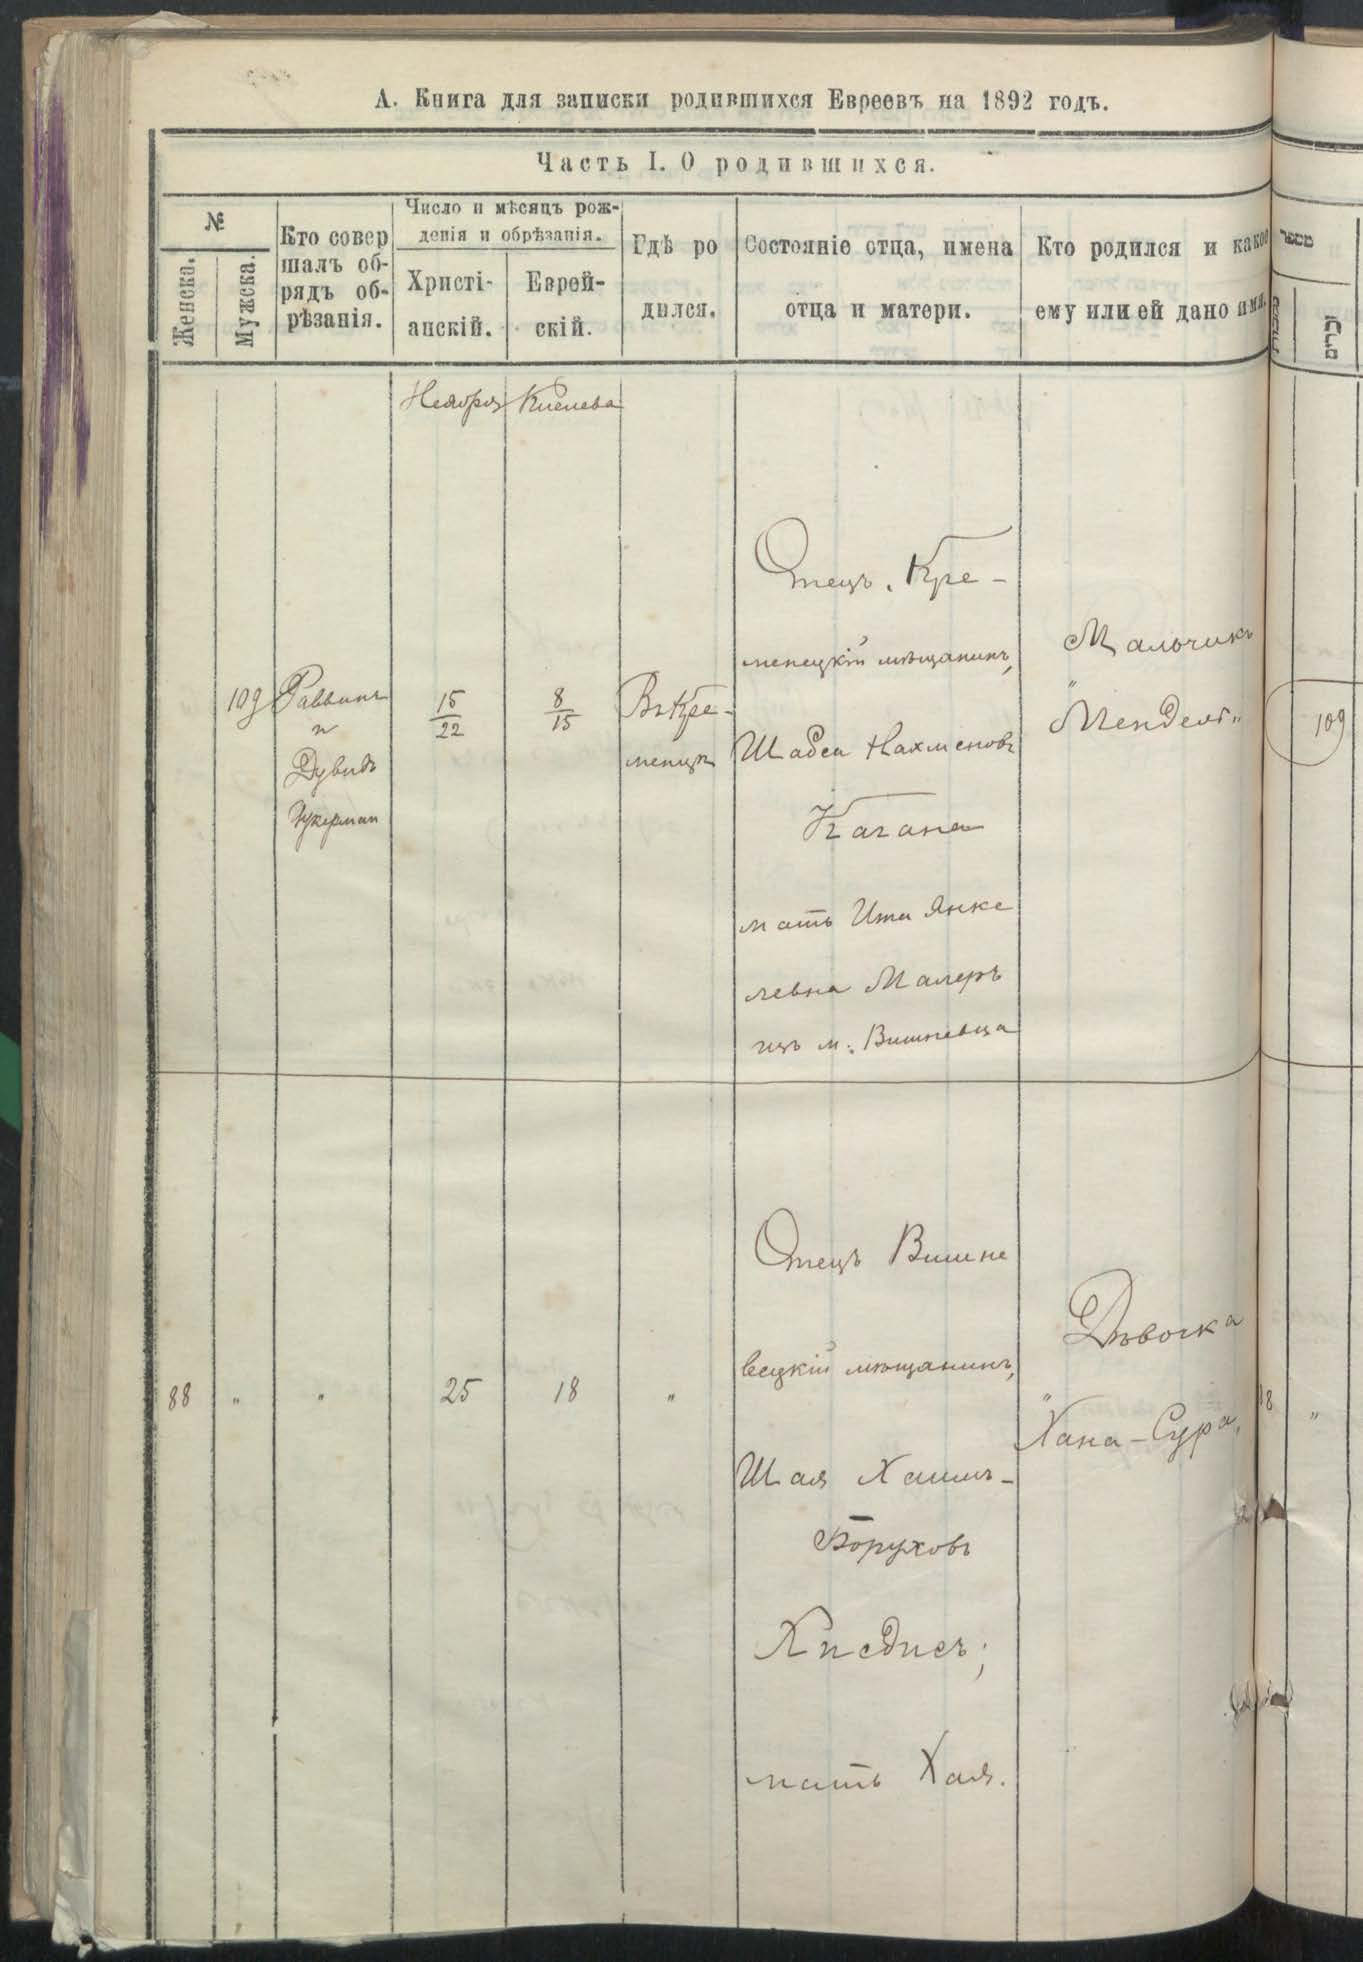 А. Книга для записки родившихся Евреевъ на 1892 годъ.
Часть I. О родившихся.
№
Женска.
Мужска.
Кто совер
шалъ об-
рядъ об-
рѣзанія.
Число и мѣсяцъ рож-
денія и обрѣзанія.
Христі-
анскій.
Еврей-
скій.
Гдѣ ро
дился.
Состояніе отца, имена
отца и матери.
Кто родился и какое
ему или ей дано имя.
מספר
זכרים
Ноября
Кислева
109
Раввинъ
и
Дувидъ
Цукерман
15
22
8
15
Въ Кре-
менцѣ
Отецъ, Кре-
менецкій мѣщанинъ,
Шабса Нахменовъ
Кагана
мать Ита Янке
левна Малеръ
изъ м. Вишневца
Мальчикъ
"Мендель"
109
88
"
"
25
18
"
Отецъ Вишне
вецкій мѣщанинъ,
Шая Хаимъ-
Боруховъ
Хисдисъ;
мать Хая.
Дѣвочка
"Хана-Сура,
"